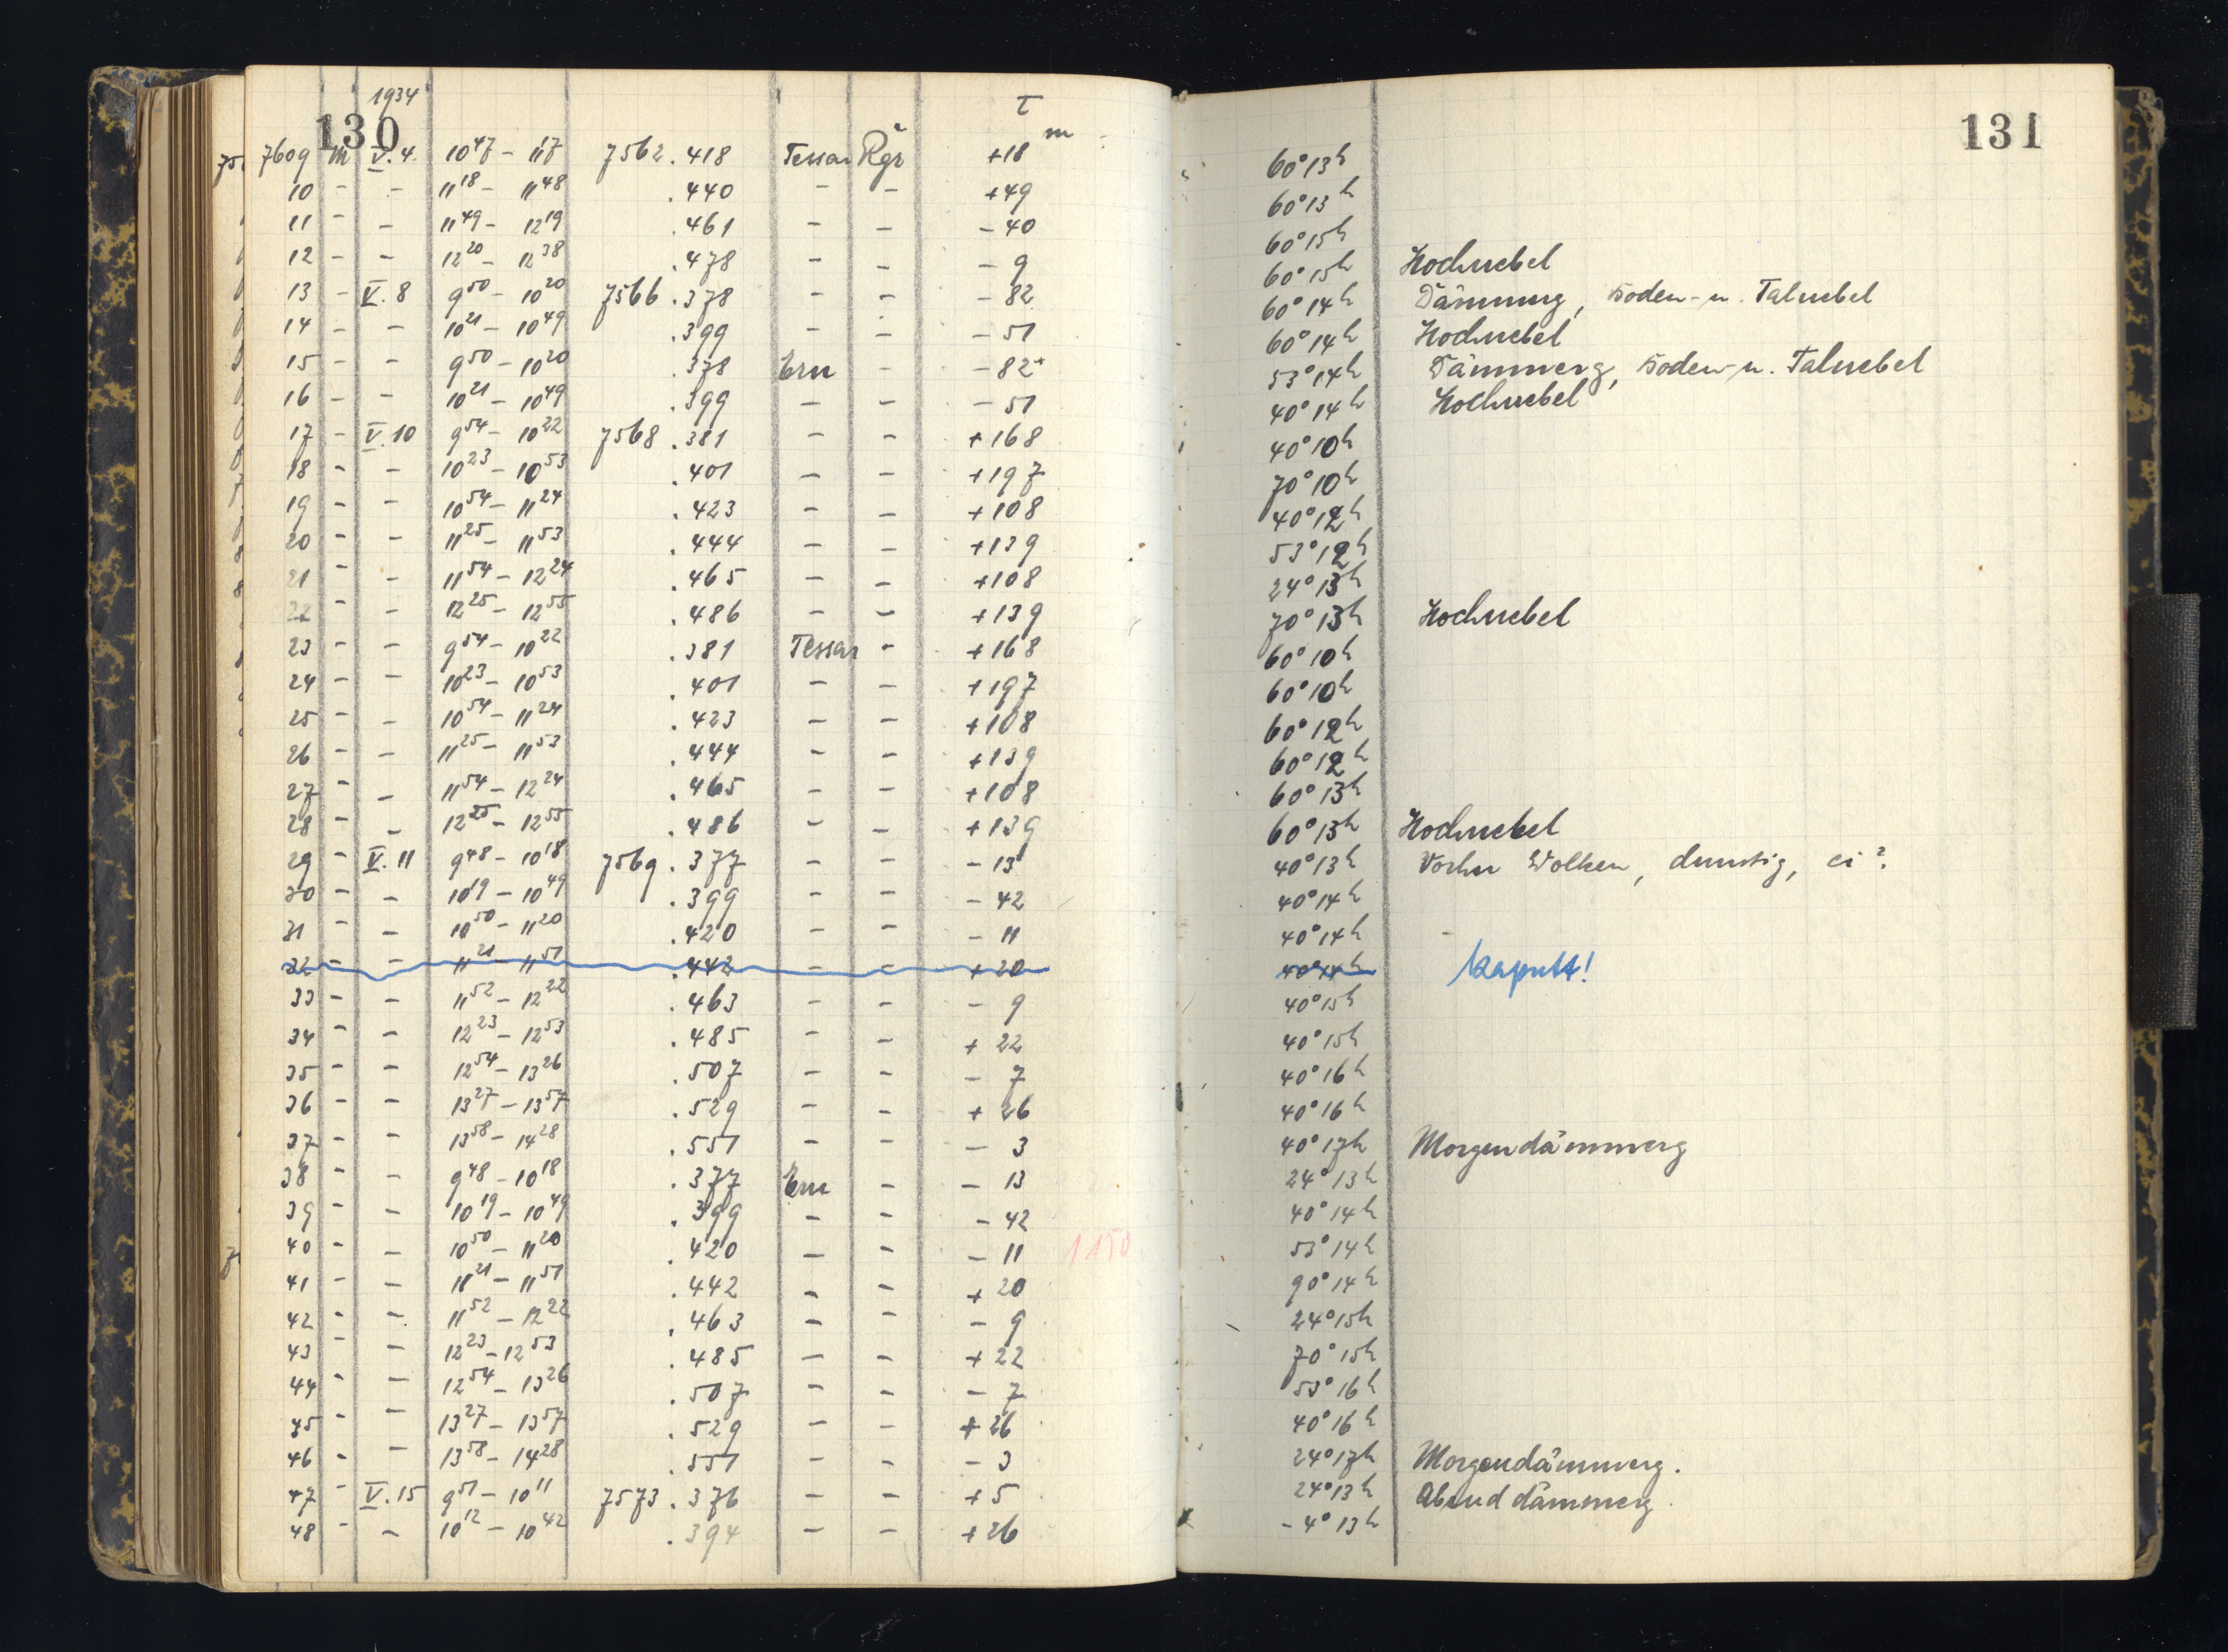 1934
130
τ
m
131
7609 m V. 4. 10 47 – 11 17 7562 .418 Tessar Rgr +18 60° 13h
10 – – 11 18 – 11 48 .440 – – +49 60° 13h
11 – – 11 49 – 12 19 .461 – – –40 60° 15h
12 – – 12 20 – 12 38 .478 – – –9 60° 15h Hochnebel
13 – V. 8 9 50 – 10 20 7566 .378 – – –82 60° 14h Dämmrg, Boden- u. Talnebel
14 – – 10 21 – 10 49 .399 – – –51 60° 14h Hochnebel
15 – – 9 50 – 10 20 .378 Ern – –82 53° 14h Dämmerg, Boden- u. Talnebel
16 – – 10 21 – 10 49 .399 – – –51 40° 14h Hochnebel
17 – V. 10 9 54 – 10 22 7568 .381 – – +168 40° 10h
18 – – 10 23 – 10 53 .401 – – +197 70° 10h
19 – – 10 54 – 11 24 .423 – – +108 40° 12h
20 – – 11 25 – 11 53 .444 – – +139 53° 12h
21 – – 11 54 – 12 24 .465 – – +108 24° 13h
22 – – 12 25 – 12 55 .486 – – +139 70° 13h Hochnebel
23 – – 9 54 – 10 22 .381 Tessar – +168 60° 10h
24 – – 10 23 – 10 53 .401 – – +197 60° 10h
25 – – 10 54 – 11 24 .423 – – +108 60° 12h
26 – – 11 25 – 11 53 .444 – – +139 60° 12h
27 – – 11 54 – 12 24 .465 – – +108 60° 13h
28 – – 12 25 – 12 55 .486 – – +139 60° 13h Hochnebel
29 – V. 11 9 48 – 10 18 7569 .377 – – –13 40° 13h Vorher Wolken, dunstig, ci?
30 – – 10 19 – 10 49 .399 – – –42 40° 14h
31 – – 10 50 – 11 20 .420 – – –11 40° 14h
32 – – 11 21 – 11 51 .442 – – +20 40° 14h kaputt!
33 – – 11 52 – 12 22 .463 – – –9 40° 15h
34 – – 12 23 – 12 53 .485 – – +22 40° 15h
35 – – 12 54 – 13 26 .507 – – –7 40° 16h
36 – – 13 27 – 13 57 .529 – – +26 40° 16h
37 – – 13 58 – 14 28 .551 – – –3 40° 17h Morgendämmerg
38 – – 9 48 – 10 18 .377 Ern – –13 24° 13h
39 – – 10 19 – 10 49 .399 – – –42 40° 14h
40 – – 10 50 – 11 20 .420 – – –11 1150 53° 14h
41 – – 11 21 – 11 51 .442 – – +20 90° 14h
42 – – 11 52 – 12 22 .463 – – –9 24° 15h
43 – – 12 23 – 12 53 .485 – – +22 70° 15h
44 – – 12 54 – 13 26 .507 – – –7 53° 16h
45 – – 13 27 – 13 57 .529 – – +26 40° 16h
46 – – 13 58 – 14 28 .551 – – –3 24° 17h Morgendämmerg.
47 – V. 15 9 51 – 10 11 7573 .376 – – +5 24° 13h Abenddämmerg.
48 – – 10 12 – 10 42 .394 – – +26 –4° 13h